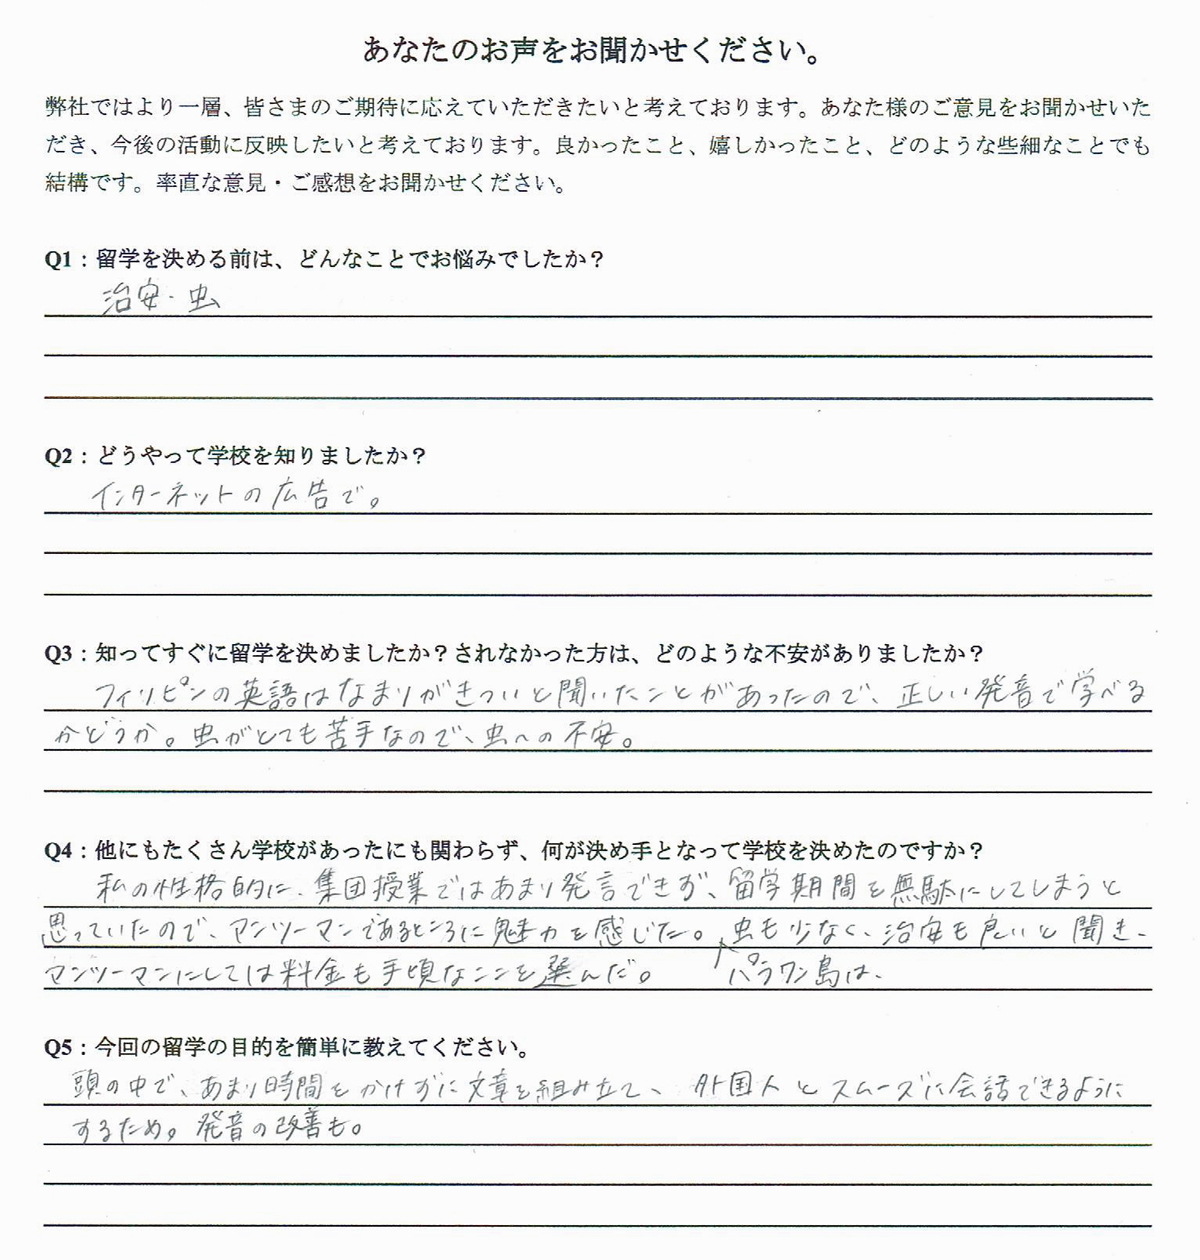 あなたのお声をお聞かせください。
弊社ではより一層、皆さまのご期待に応えていただきたいと考えております。あなた様のご意見をお聞かせいた
だき、今後の活動に反映したいと考えております。良かったこと、嬉しかったこと、どのような些細なことでも
結構です。率直な意見・ご感想をお聞かせください。
Q1：留学を決める前は、どんなことでお悩みでしたか？
治安・虫
Q2：どうやって学校を知りましたか？
インターネットの広告で。
Q3：知ってすぐに留学を決めましたか？されなかった方は、どのような不安がありましたか？
フィリピンの英語はなまりがきついと聞いたことがあったので、正しい発音で学べる
かどうか。虫がとても苦手なので、虫への不安。
Q4：他にもたくさん学校があったにも関わらず、何が決め手となって学校を決めたのですか？
私の性格的に、集団授業ではあまり発言できず、留学期間を無駄にしてしまうと
思っていたので、マンツーマンであるところに魅力を感じた。虫も少なく、治安も良いと聞き、
マンツーマンにしては料金も手頃なここを選んだ。 パラワン島は、
Q5：今回の留学の目的を簡単に教えてください。
頭の中で、あまり時間をかけずに文章を組み立て、外国人とスムーズに会話できるように
するため。発音の改善も。